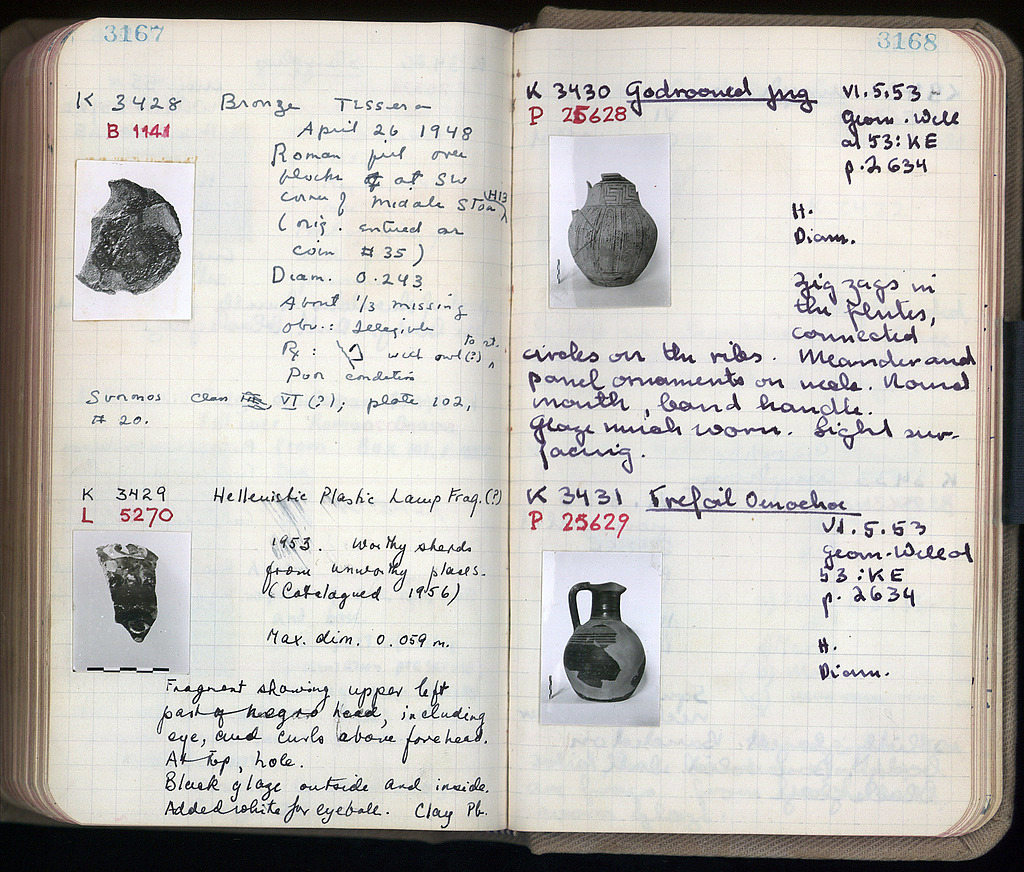 3167
K 3428 Bronze Tessera
B 1141
April 26 1948
Roman pit over
blocks at SW
corner of Middle Stoa (H13)
(orig. entered as
coin # 35)
Diam. 0.243
About 1/3 missing
Obv.: Illegible
Rx: with owl (?) to rt.
Poor condition
Svoronos class VI (?); plate 102,
# 20.
K 3429 Hellenistic Plastic Lamp Frag. (?)
L 5270
1953. Worthy sherds
from unworthy places.
(Catalogued 1956)
Max. dim. 0.059 m.
Fragment showing upper left
part of negro head, including
eye, and curls above forehead.
At top, hole.
Black glaze outside and inside.
Added white for eyeball. Clay Pb.
3168
K 3430 Godrooned Jug
P 25628
VI.5.53
Geom. Well
at 53:KE
p. 2634
H.
Diam.
Zig zags in
the flutes,
connected
circles on the ribs. Meander and
panel ornaments on neck. Round
mouth, band handle.
Glaze much worn. Light sur-
facing.
K 3431 Trefoil Oinochoe
P 25629
VI.5.53
Geom. Well at
53:KE
p. 2634
H.
Diam.